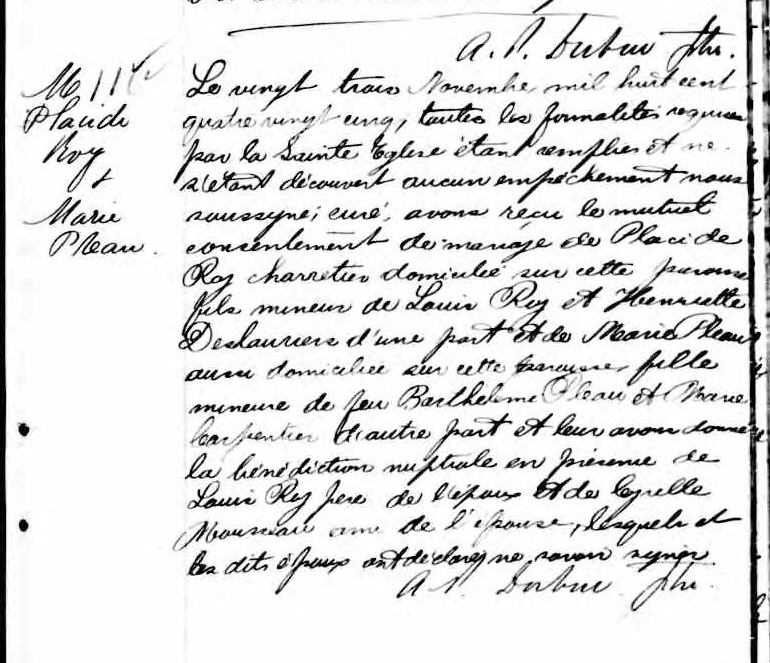 A. P. Dubuc Ptre.
M 11
Placide
Roy
&
Marie
Pleau.
Le vingt trois Novembre mil huit cent
quatre vingt cinq, toutes les formalités requises
par la Sainte Eglise étant remplies et ne
s'étant découvert aucun empêchement nous
soussigné, curé, avons reçu le mutuel
consentement de mariage de Placide
Roy charretier domicilié sur cette paroisse
fils mineur de Louis Roy et Henriette
Deslauriers d'une part et de Marie Pleau
aussi domiciliée sur cette paroisse, fille
mineure de feu Barthelemi Pleau et Marie
Carpentier d'autre part et leur avons donné
la bénédiction nuptiale en présence de
Louis Roy père de l'époux et de Cyrille
Mousseau ami de l'épouse, lesquels et
les dits époux ont déclaré ne savoir signer
A. P. Dubuc Ptre.